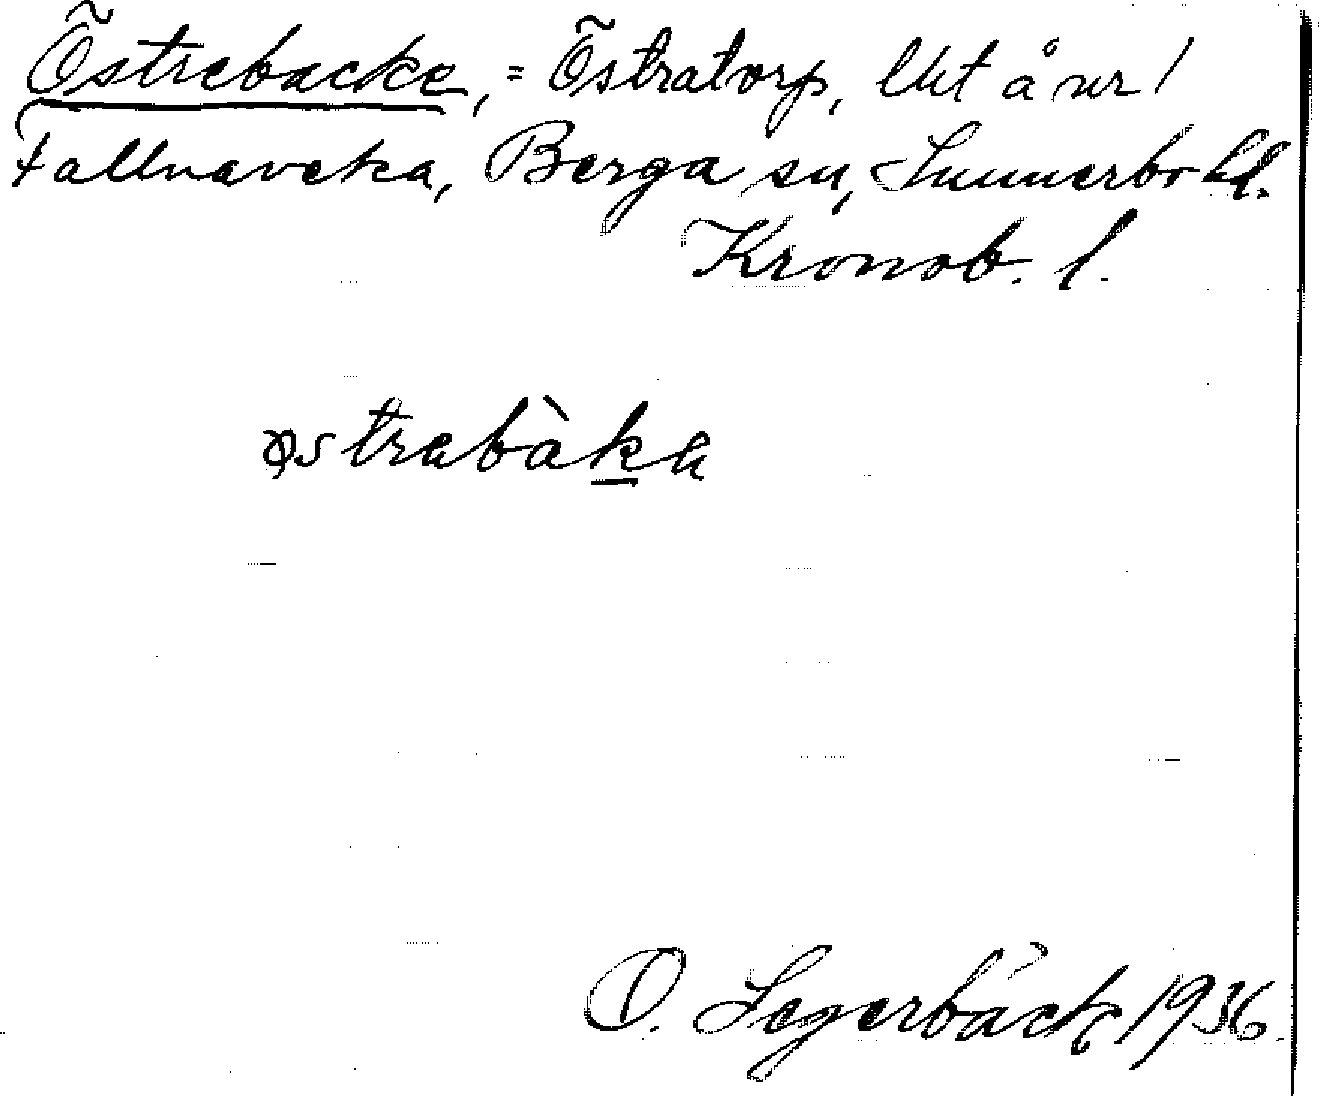 Östrebacke, = Östratorp, lht å nr 1
Fallnaveka, Berga sn, Sunnerbo hd.
Kronob. l.
østrabàka
O. Segerbäck 1936.